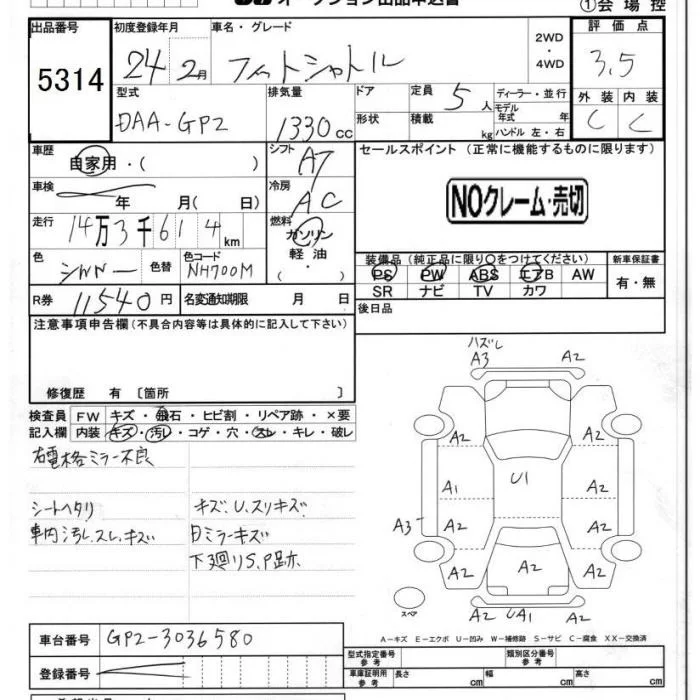 オークション出品申込書
①会場控
出品番号 初度登録年月 車名・グレード 2WD ・ 4WD 評価点
5314 24年 2月 フィットシャトル 3.5
型式 排気量 ドア 定員 5人 ディーラー・並行 外装 内装
DAA-GP2 1330cc 形状 積載 kg モデル年式 年 ハンドル 左・右 C C
車歴 自家用・( ) シフト AT セールスポイント (正常に機能するものに限ります)
車検 年 月( 日) 冷房 AC NOクレーム・売切
走行 14万3千614km 燃料 ガソリン
軽油
( ・ )
色 シルバー 色替 色コード NH700M 装備品(純正品に限り○をつけてください) 新車保証書
PS PW ABS エアB AW 有・無
SR ナビ TV カワ
R券 11540円 名変通知期限 月 日 後日品
注意事項申告欄(不具合内容等は具体的に記入して下さい)
修復歴 有 〔箇所 〕
検査員 FW キズ・飛石・ヒビ割・リペア跡・×要
記入欄 内装 キズ・汚レ・コゲ・穴・スレ・キレ・破レ
右電格ミラー不良
シートヘタリ キズ、U、スリキズ
車内汚レ、スレ、キズ 日ミラーキズ
下廻りS、P跡
ハズレ
A3 A2
A2 A2
U1
A1 A2
A3 A2 A2
A2 A2 A2
スペア A2 UA1 A2
A-キズ E-エクボ U-凹み W-補修跡 S-サビ C-腐食 XX-交換済
車台番号 GP2-3036580
型式指定番号 参考 類別区分番号 参考
登録番号 車庫証明用 参考 長さ cm 幅 cm 高さ cm